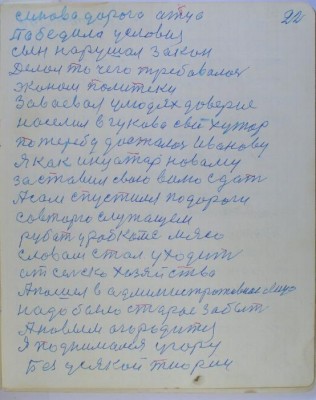 22
синова дорога отца
Победила условия
сын нарушал закон
Делал то чего требовалось
эконом политики
Завоевал улюдях доверие
населил в гукова свой хутор
потеребу досталось Иванову
Я как инциатар новаму
заставил свою волю сдать
А сам спустился по дороги
совторго служащем
рубат уробкопе мясо
словам стал уходить
от селско хозяйства
Апошол в административное лицо
надо было старое забыть
Ановым огородится
Я поднимался угору
Без усякой тиории